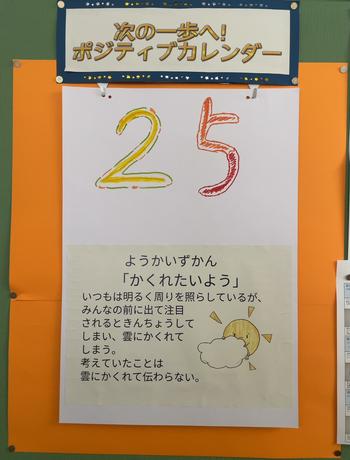 次の一歩へ!
ポジティブカレンダー
25
ようかいずかん
「かくれたいよう」
いつもは明るく周りを照らしているが、
みんなの前に出て注目
されるときんちょうして
しまい、雲にかくれて
しまう。
考えていたことは
雲にかくれて伝わらない。